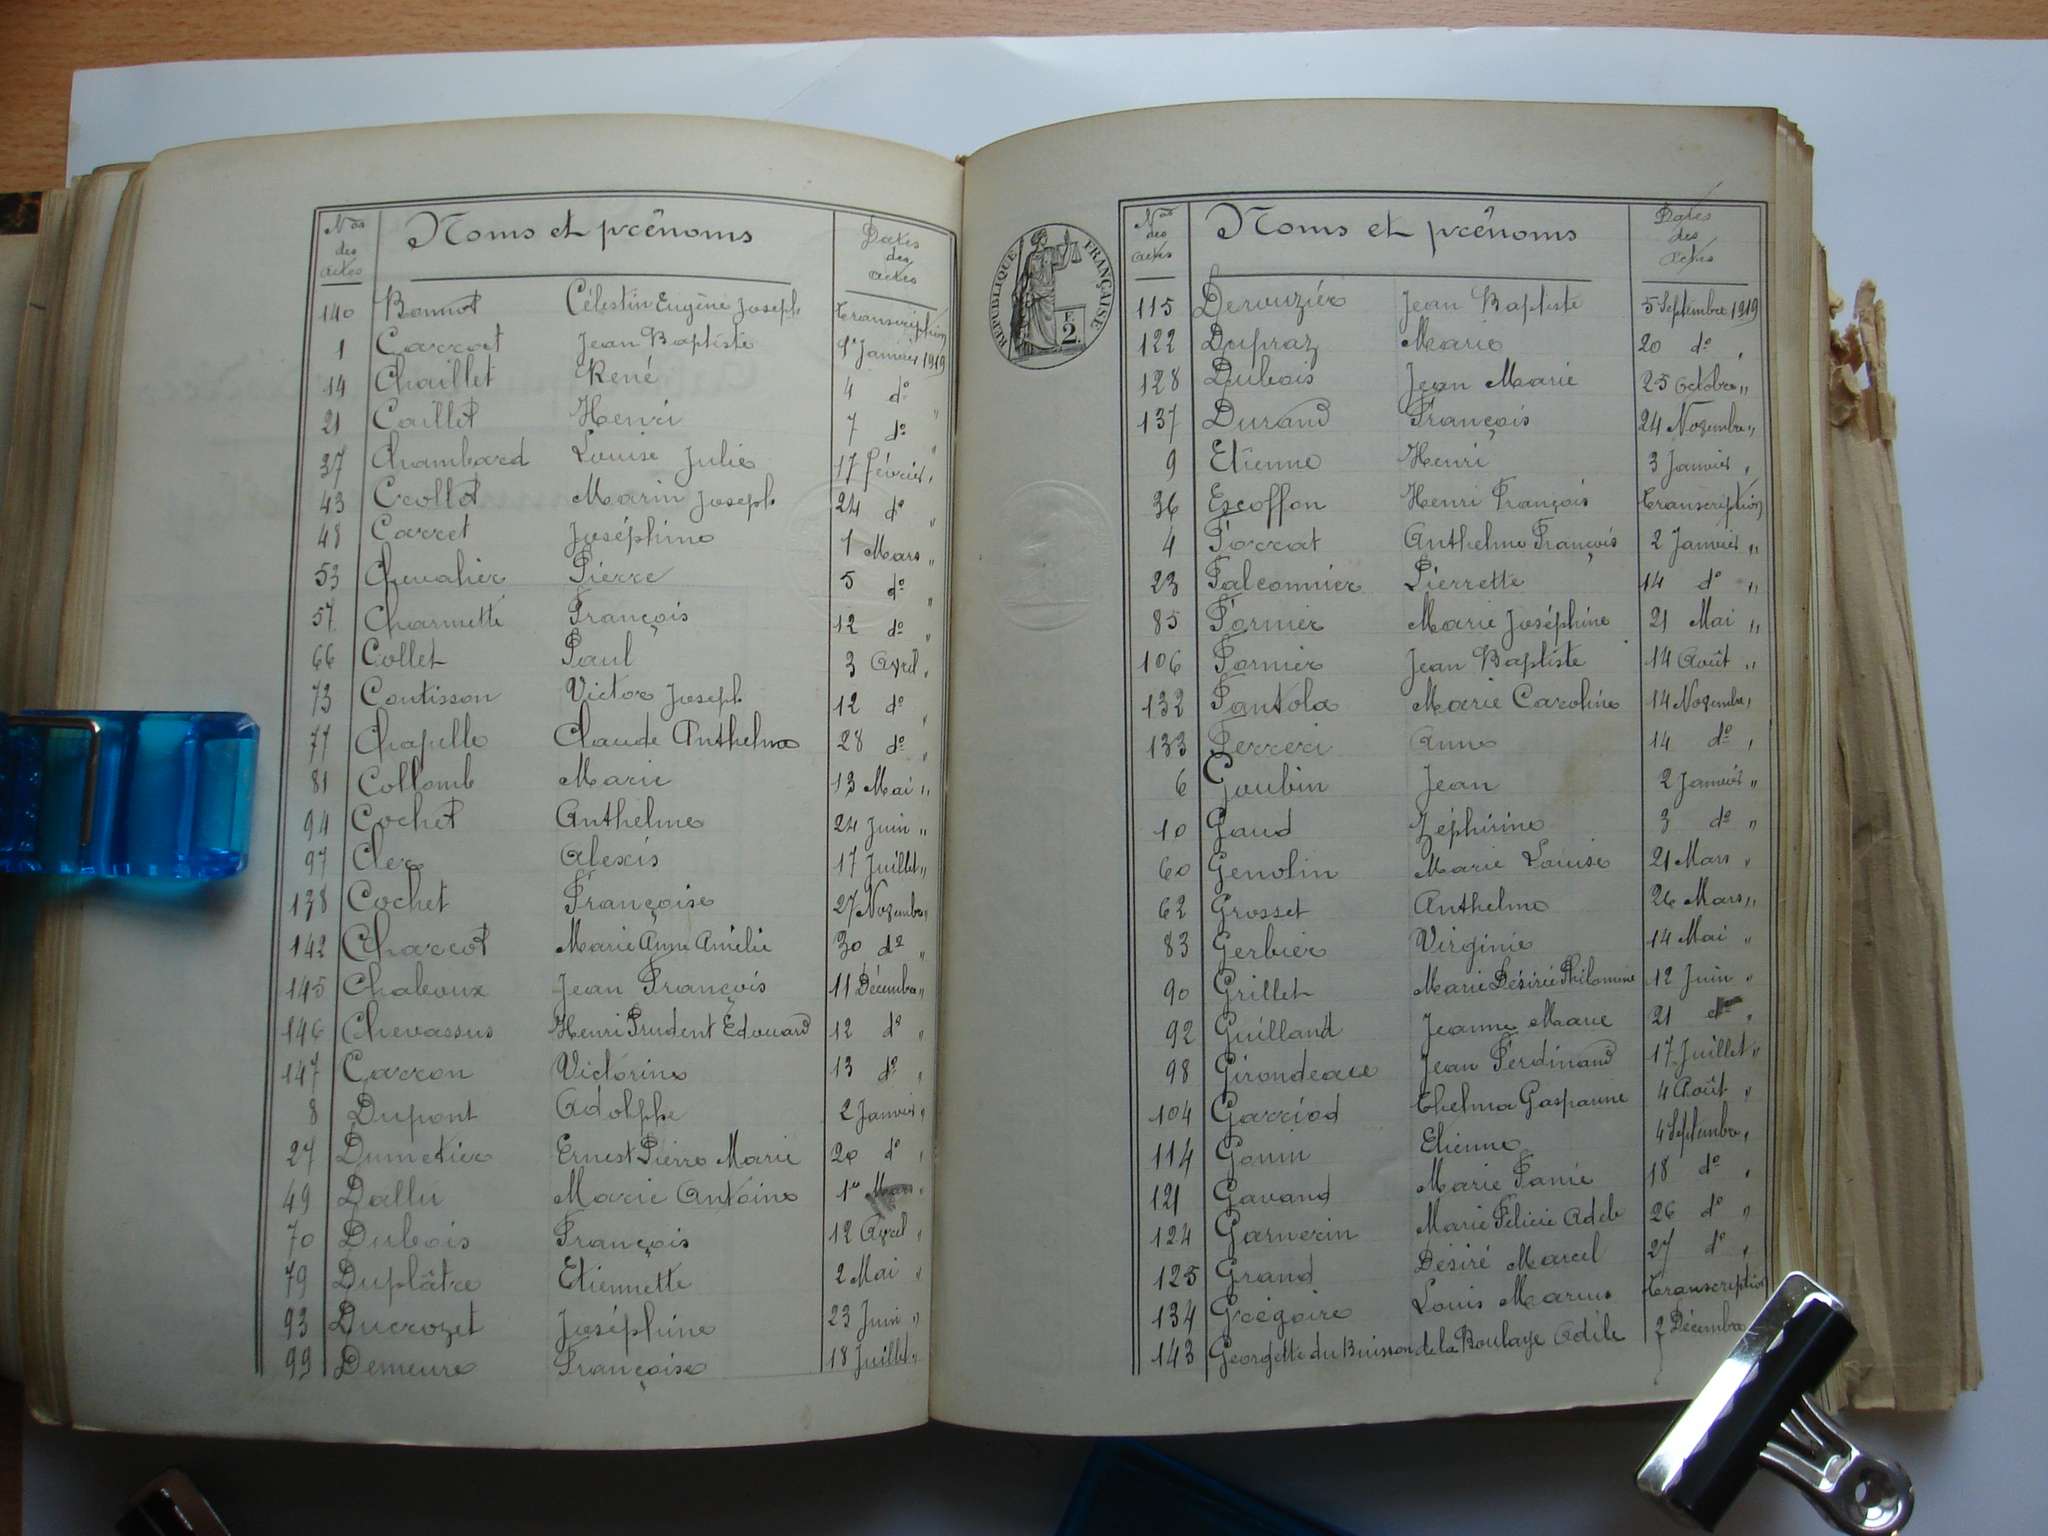 Nos des actes Noms et prénoms Dates des actes
140 Bonnot Célestin Eugène Joseph transcription
1 Carrot Jean Baptiste 1er Janvier 1919
14 Chaillet René 4 do "
21 Caillot Henri 7 do "
37 Chambard Louise Julie 17 Février "
43 Crollot Marin Joseph 24 do "
48 Carret Joséphine 1 Mars "
53 Chevalier Pierre 5 do "
57 Charmette François 12 do "
66 Collet Paul 3 Avril "
73 Coutisson Victor Joseph 12 do "
77 Chapelle Claude Anthelme 28 do "
81 Collomb Marie 13 Mai "
94 Cochet Anthelme 24 Juin "
97 Clerc Alexis 17 Juillet "
138 Cochet Françoise 27 Novembre "
142 Charcot Marie Anne Amélie 30 do "
145 Chaboux Jean François 11 Décembre "
146 Chevassus Henri Prudent Edouard 12 do "
147 Carron Victorine 13 do "
8 Dupont Adolphe 2 Janvier "
27 Dumetier Ernest Pierre Marie 20 do "
49 Dallu Marie Antoine 1er Mars "
70 Dubois François 12 Avril "
79 Duplâtre Etiennette 2 Mai "
93 Ducrozet Joséphine 23 Juin "
99 Demeure Françoise 18 Juillet "
RÉPUBLIQUE FRANÇAISE
F.
2.
Nos des actes Noms et prénoms Dates des actes
115 Derouzier Jean Baptiste 5 Septembre 1919
122 Dupraz Marie 20 do "
128 Dubois Jean Marie 25 Octobre "
137 Durand François 24 Novembre "
9 Etienne Henri 3 Janvier "
36 Escoffon Henri François transcription
4 Forrat Anthelme François 2 Janvier "
23 Falconnier Pierrette 14 do "
85 Fornier Marie Joséphine 21 Mai "
106 Fornier Jean Baptiste 14 Août "
132 Fantola Marie Caroline 14 Novembre "
133 Ferreri Anna 14 do "
6 Goubin Jean 2 Janvier "
10 Gaud Zéphirine 3 do "
60 Genolin Marie Louise 21 Mars "
62 Grosset Anthelme 26 Mars "
83 Gerbier Virginie 14 Mai "
90 Grillet Marie Désirée Philomène 12 Juin "
92 Guilland Jeanne Marie 21 do "
98 Girondeau Jean Ferdinand 17 Juillet "
104 Garriod Thelma Gasparine 4 Août "
114 Gonin Etienne 4 Septembre "
121 Gavand Marie Fanie 18 do "
124 Garnerin Marie Félicie Adèle 26 do "
125 Grand Désiré Marcel 27 do "
134 Grégoire Louis Marius transcription
143 Georgette du Buisson de la Boulaye Adèle 7 Décembre